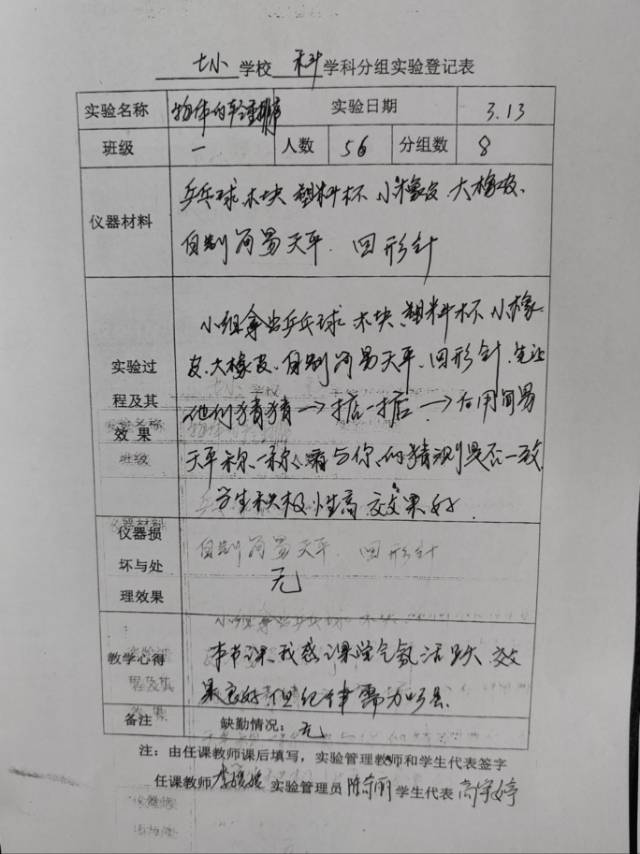 七小学校 科学科分组实验登记表
实验名称 物体的轻重排序 实验日期 3.13
班级 一 人数 56 分组数 8
仪器材料
乒乓球、木块、塑料杯、小橡皮、大橡皮、
自制简易天平、回形针
实验过程及其效果
小组拿出乒乓球、木块、塑料杯、小橡
皮、大橡皮、自制简易天平、回形针、先让
他们猜猜→掂一掂→后用简易
天平称一称、看与你的猜测是否一致
学生积极性高 效果好.
仪器损坏与处理效果
无
教学心得
本节课,我感课堂气氛活跃 效
果良好,但纪律需加
备注 缺勤情况：无
注：由任课教师课后填写，实验管理教师和学生代表签字
任课教师 实验管理员 学生代表